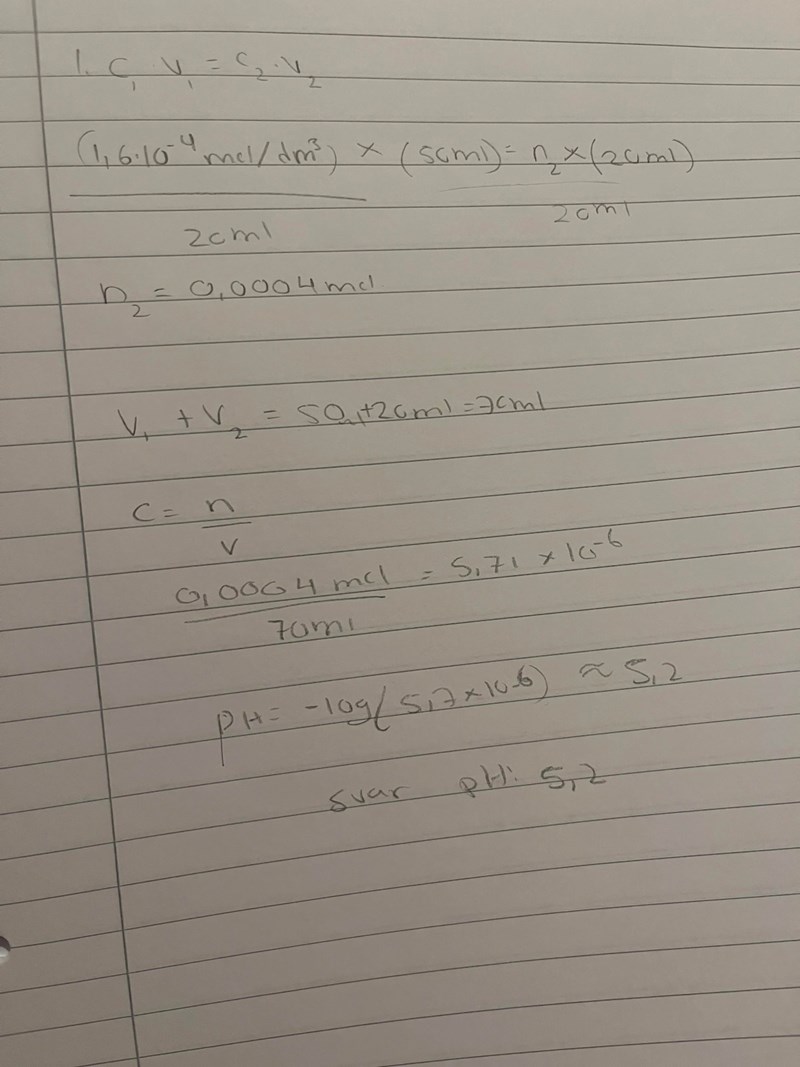 1. C₁ V₁ = C₂ · V₂
(1,6·10⁻⁴ mol/dm³) × (50ml) = n₂ × (20ml)
20ml 20ml
n₂ = 0,0004 mol
V₁ + V₂ = 50 + 20ml = 70ml
C = n
V
0,0004 mol = 5,71 × 10⁻⁶
70ml
pH = -log(5,7 × 10⁻⁶) ≈ 5,2
svar pH: 5,2